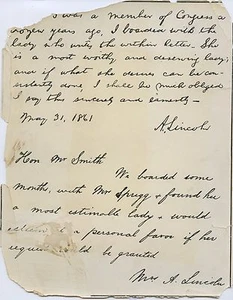 I was a member of Congress a
dozen years ago, I boarded with the
lady who writes the within letter. She
is a most worthy and deserving lady;
and if what she desires can be con-
sistently done, I shall be much obliged
I say this sincerely and earnestly—
May 31, 1861
A. Lincoln
Hon Mr Smith
We boarded some
months, with Mrs Sprigg & found her
a most estimable lady & would
esteem it a personal favor if her
request could be granted
Mrs A. Lincoln